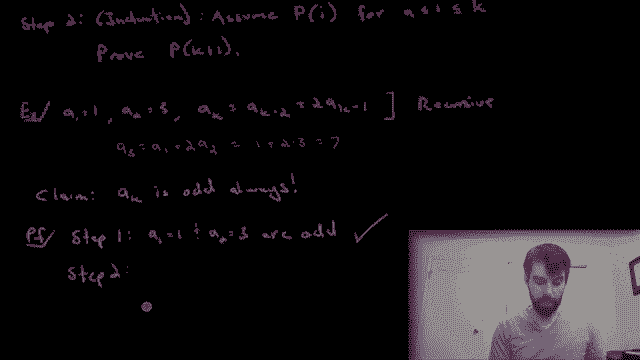 Step 2: (Induction): Assume P(i) for a ≤ i ≤ k
Prove P(k+1).
Ex/ a₁=1, a₂=3, aₖ = aₖ₋₂ + 2aₖ₋₁ ] Recursive
a₃ = a₁ + 2a₂ = 1+2·3 = 7
Claim: aₖ is odd always!
Pf/ Step 1: a₁=1 + a₂=3 are odd ✓
Step 2: